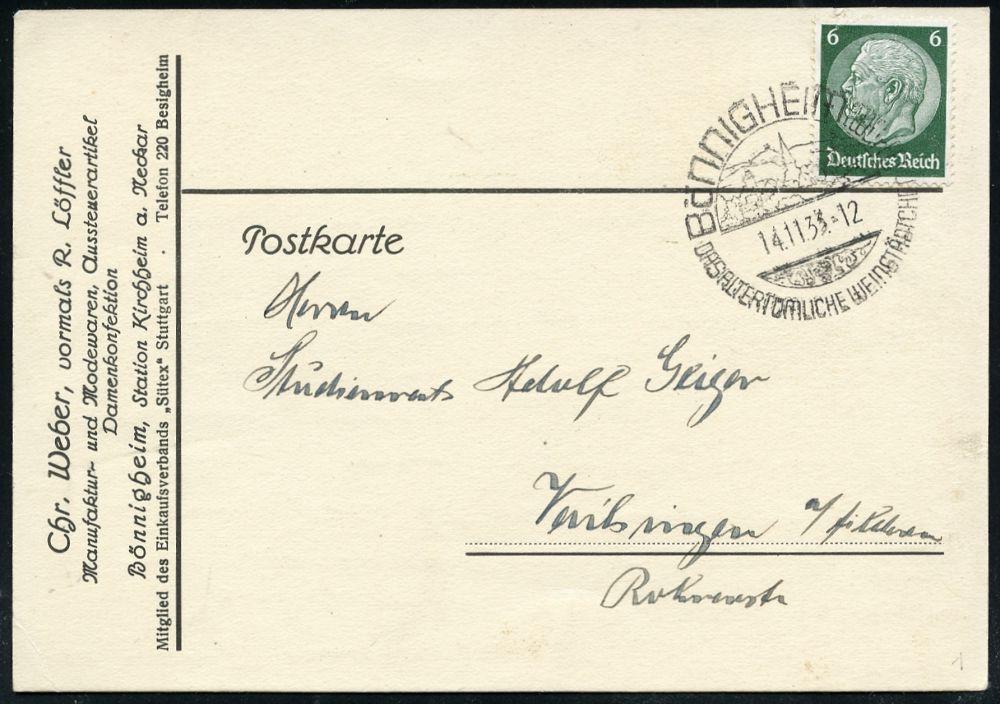 Chr. Weber, vormals R. Löffler
Manufaktur- und Modewaren, Aussteuerartikel
Damenkonfektion
Bönnigheim, Station Kirchheim a. Neckar
Mitglied des Einkaufsverbands „Sütex“ Stuttgart · Telefon 220 Besigheim
6 6
Deutsches Reich
BÖNNIGHEIM
14.11.33.-12
DAS ALTERTÜMLICHE WEINSTÄDTCHEN
Postkarte
Herrn
Adolf Geiger
Vaihingen a/Fildern
1